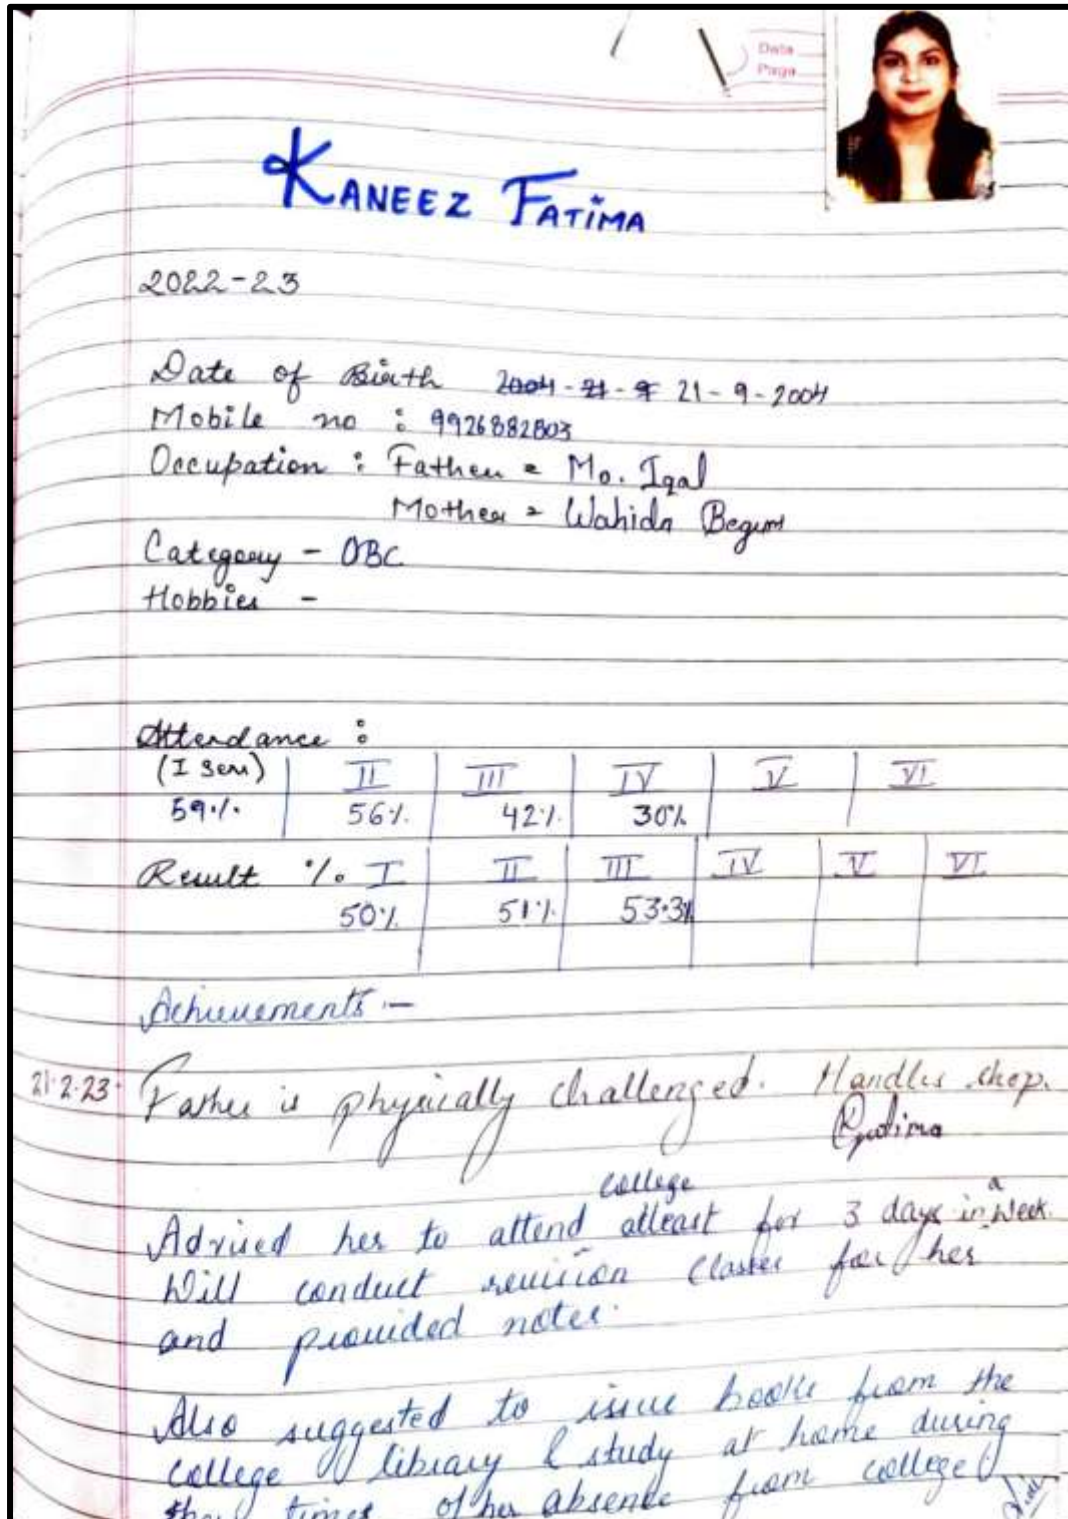 Date
Page
KANEEZ FATIMA
2022-23
Date of Birth 2004-21-9 21-9-2004
Mobile no : 9926882803
Occupation : Father = Mo. Iqal
Mother = Wahida Begum
Category - OBC
Hobbies -
Attendance :
(I Sem) II III IV V VI
59% 56% 42% 30%
Result % I II III IV V VI
50% 51% 53.3%
Achievements :-
21.2.23 Father is physically challenged. Handles shop.
Kfatima
college a
Advised her to attend atleast for 3 days in week.
Will conduct revision classes for her
and provided notes.
Also suggested to issue books from the
college library & study at home during
the times of her absence from college